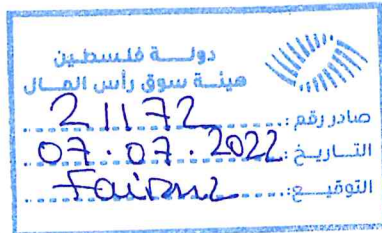 دولـــة فلسطين
هيئـة سوق رأس المـال
صادر رقم: 21172
التـاريـخ: 07.07.2022
التوقيـع: